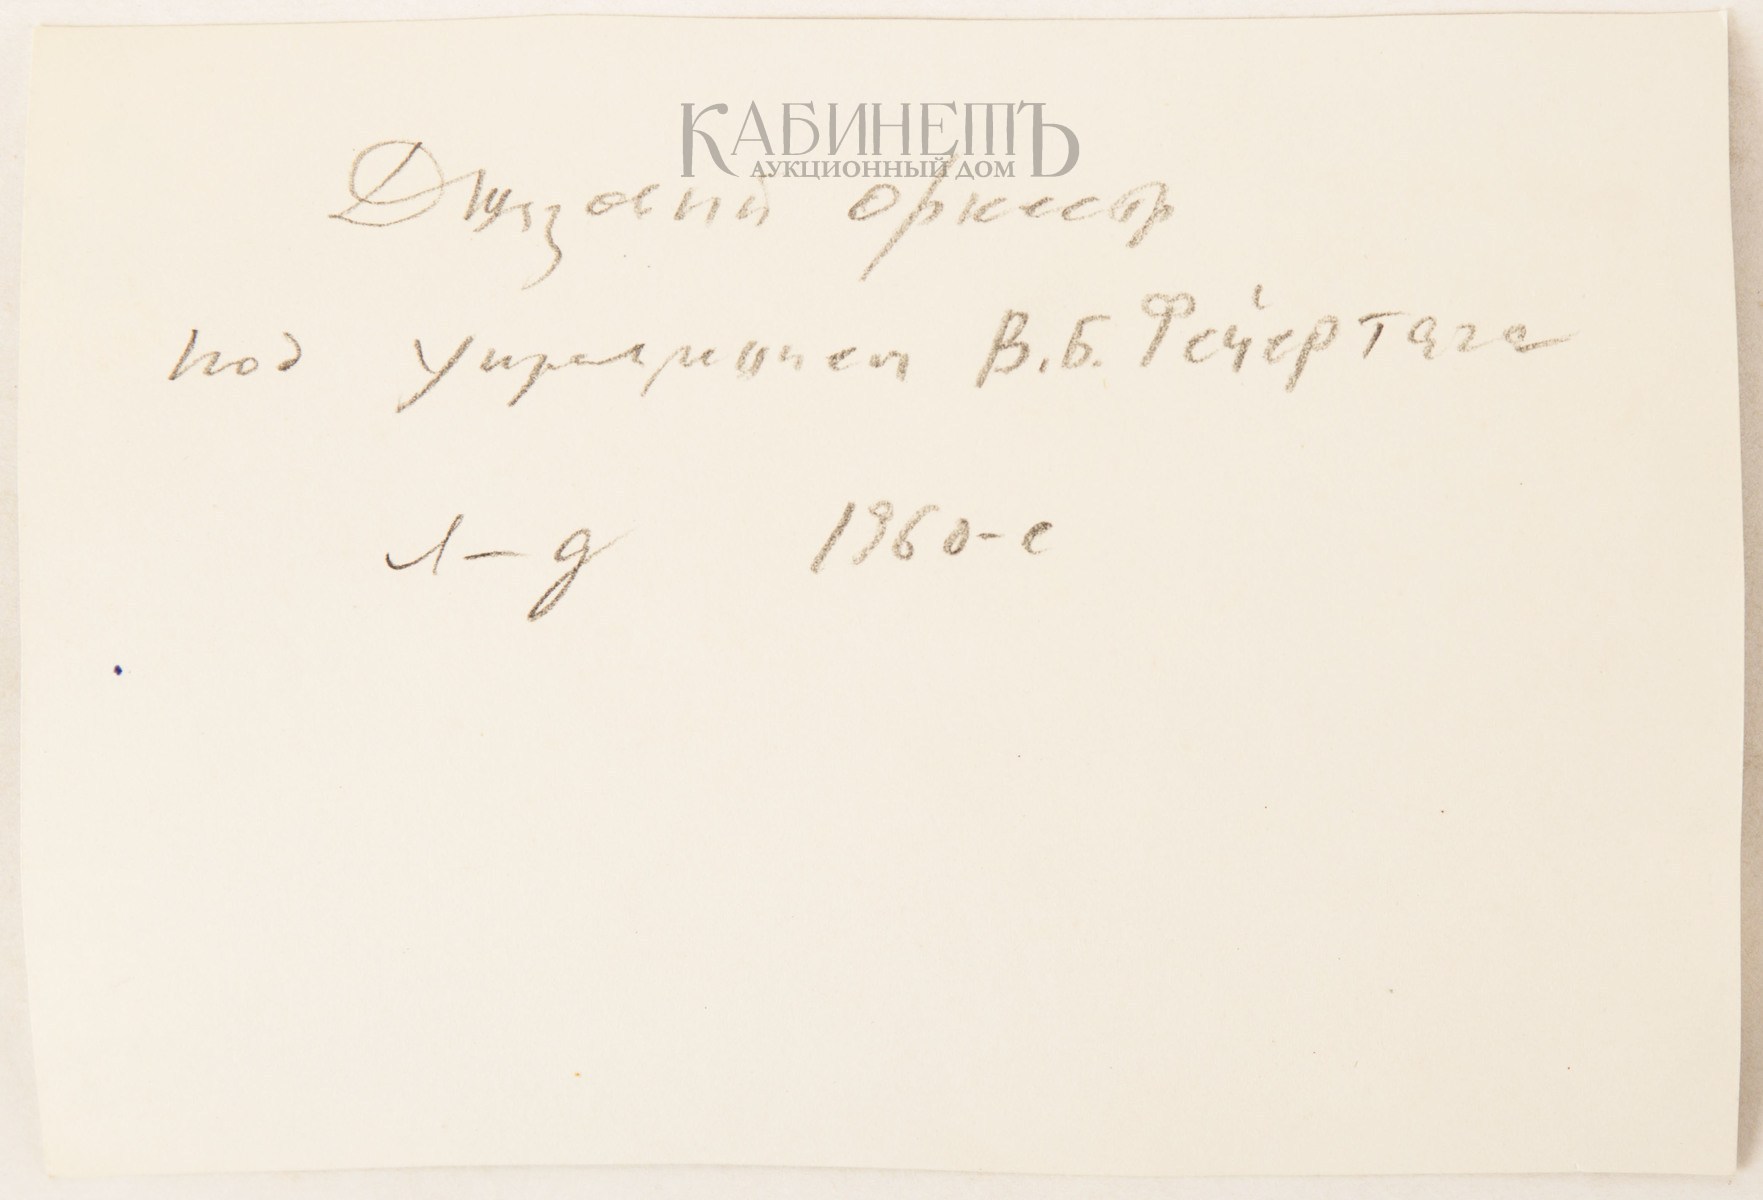 КАБИНЕТЪ
АУКЦИОННЫЙ ДОМ
Джазовый оркестр
под управлением В.Б. Фейертага
Л-д 1960-е